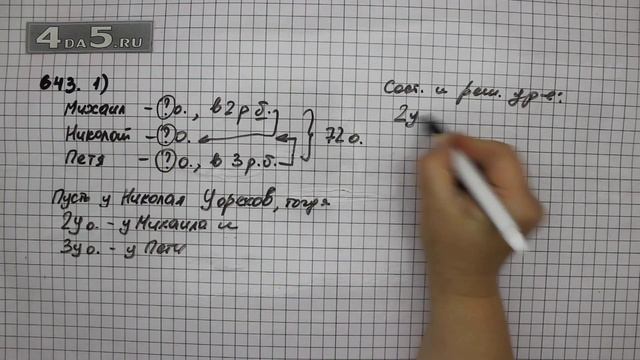 4DA5.RU
643. 1)
Михаил - ? о., в 2 р. б.
Николай - ? о. 72 о.
Петя - ? о., в 3 р. б.
Пусть у Николая y орехов, тогда
2y о. - у Михаила и
3y о. - у Пети
Сост. и реш. ур-е:
2y